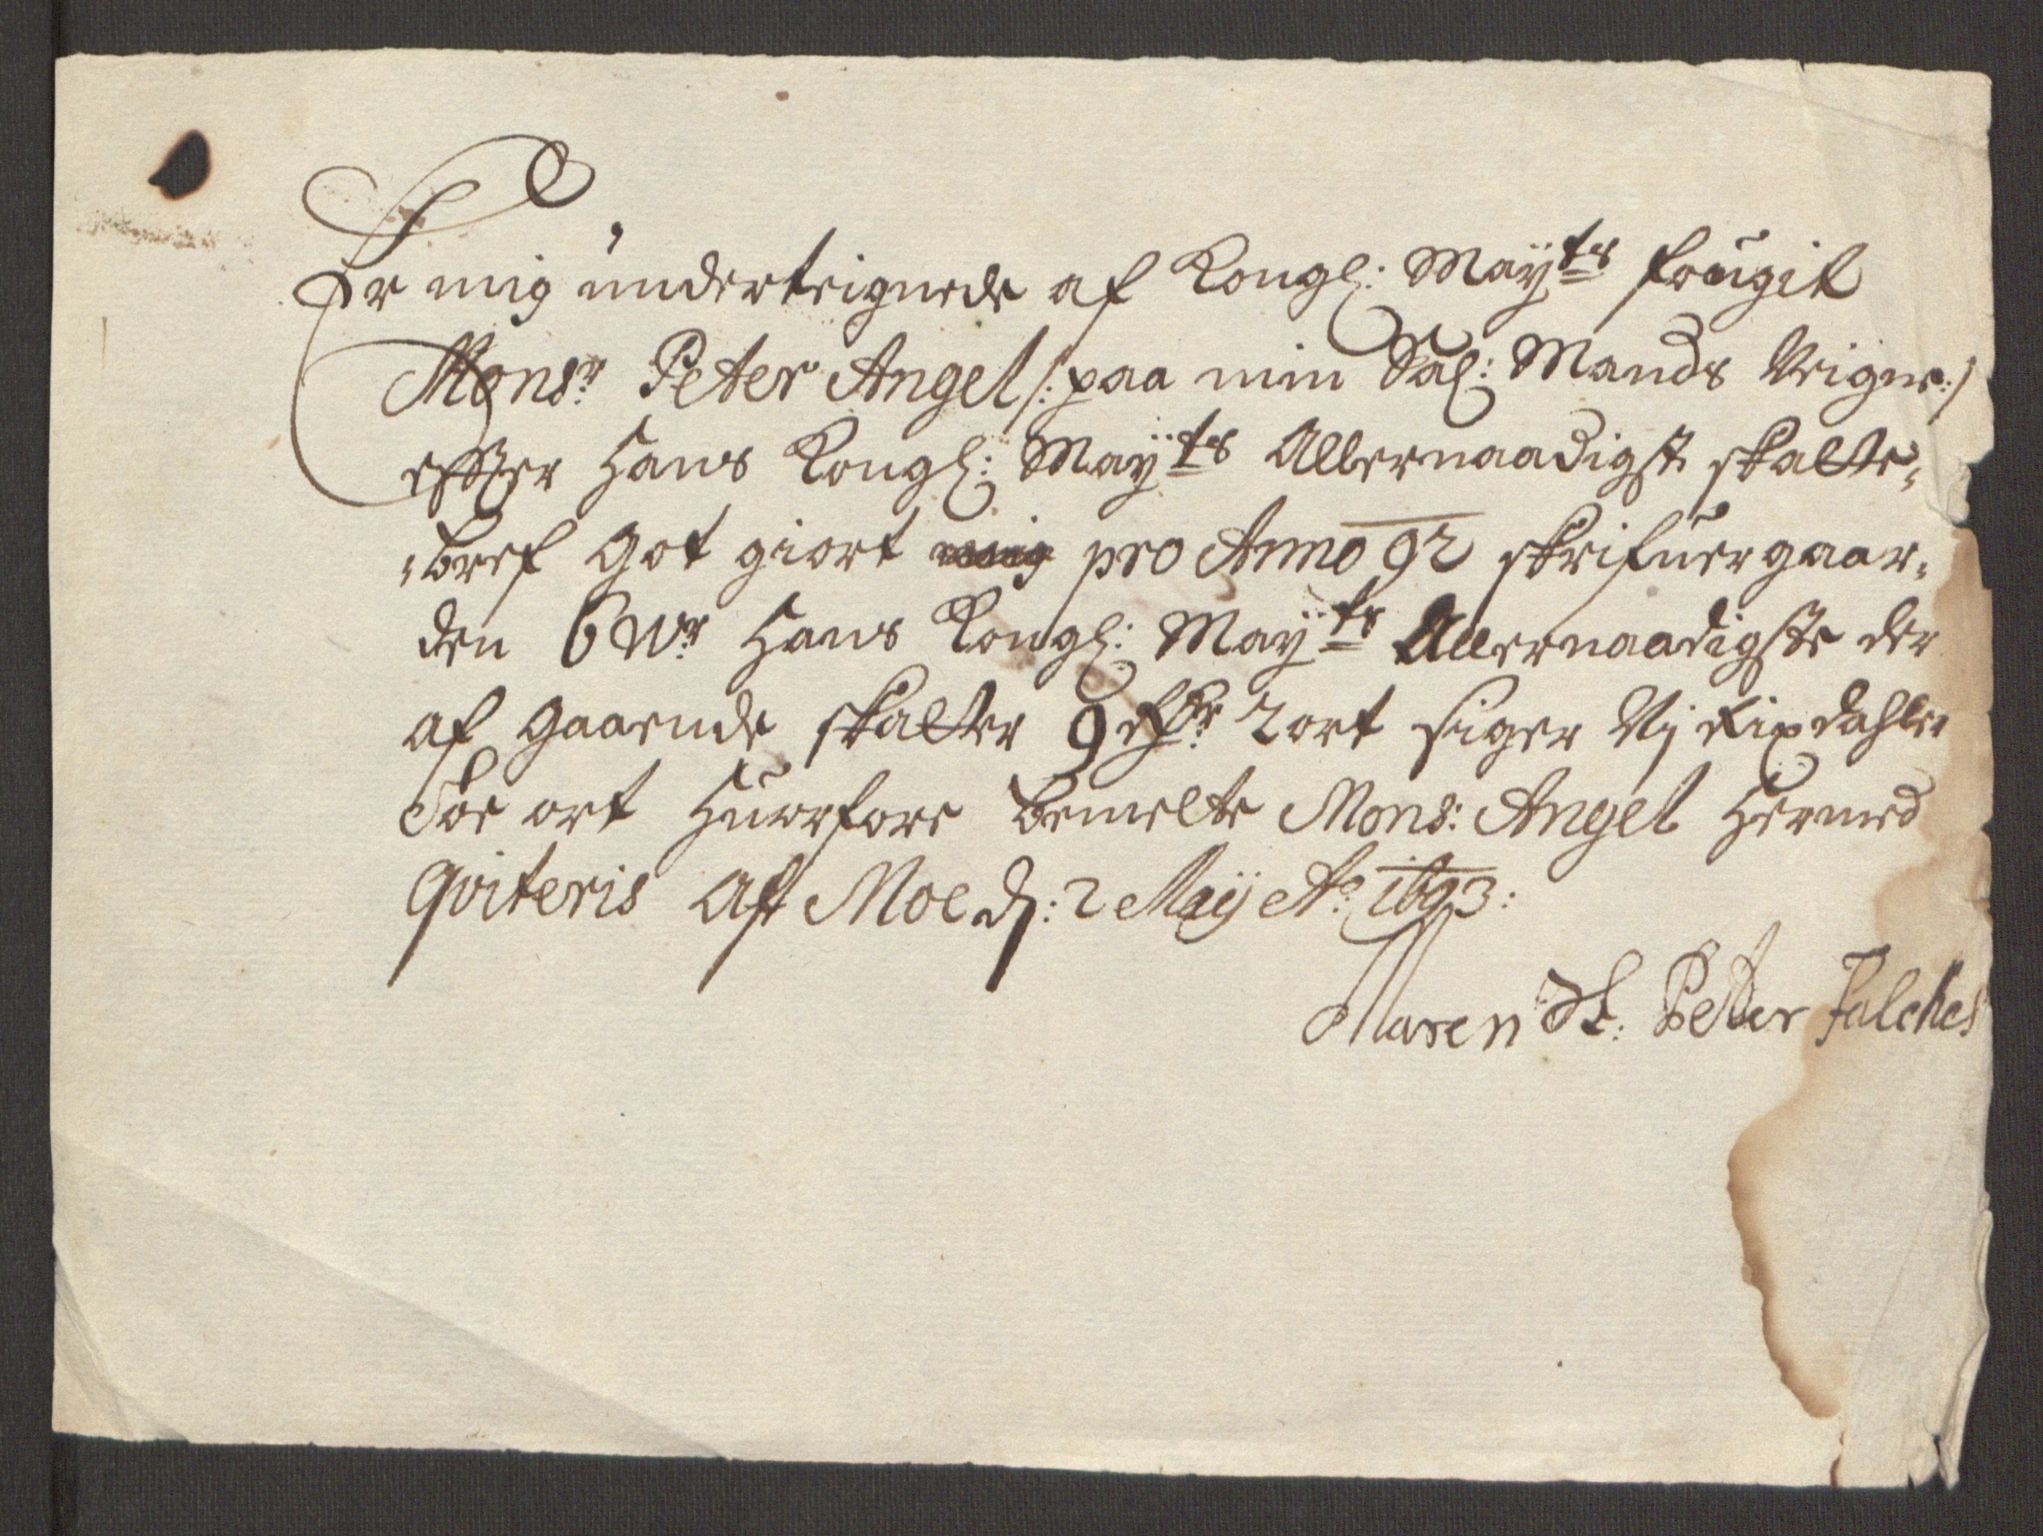 Er mig underteignede af Kongl: Mayts fougit
Monsr Peter Angel /: paa min Sal: Mands Veigne :/
effter Hans Kongl: Mayts Allernaadigst skatte,,
,,bref got giort pro Anno 92 skrifuergaar,,
den 6 Wr Hans Kongl: Mayts Allernaadigste der
af gaaende skatter 9 Rdr 2 ort siger Nj Rixdahler
Toe ort Huorfore bemelte Mons: Angel Hermed
Qviteris Aft Moe d: 2 Maij Ao 1693:
Maren Sl: Peter Falches